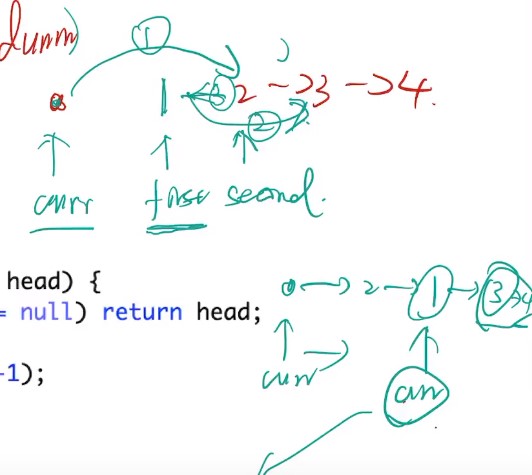 dumm)
①
0 1 ③ 2 -> 3 -> 4.
②
curr first second.
head) {
= null) return head;
0 -> 2 -> 1 -> 3 -> 4
-1);
curr
curr